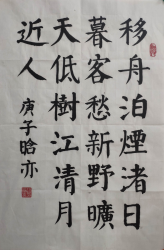 移舟泊煙渚日
暮客愁新野曠
天低樹江清月
近人
庚子晗亦